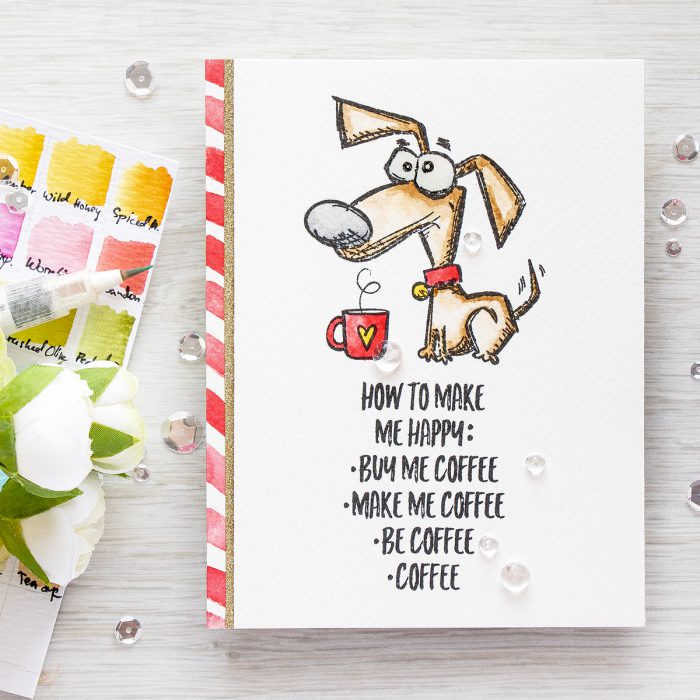 HOW TO MAKE
ME HAPPY:
•BUY ME COFFEE
•MAKE ME COFFEE
•BE COFFEE
•COFFEE
Wild Honey
Spiced M.
Crushed Olive
Tea